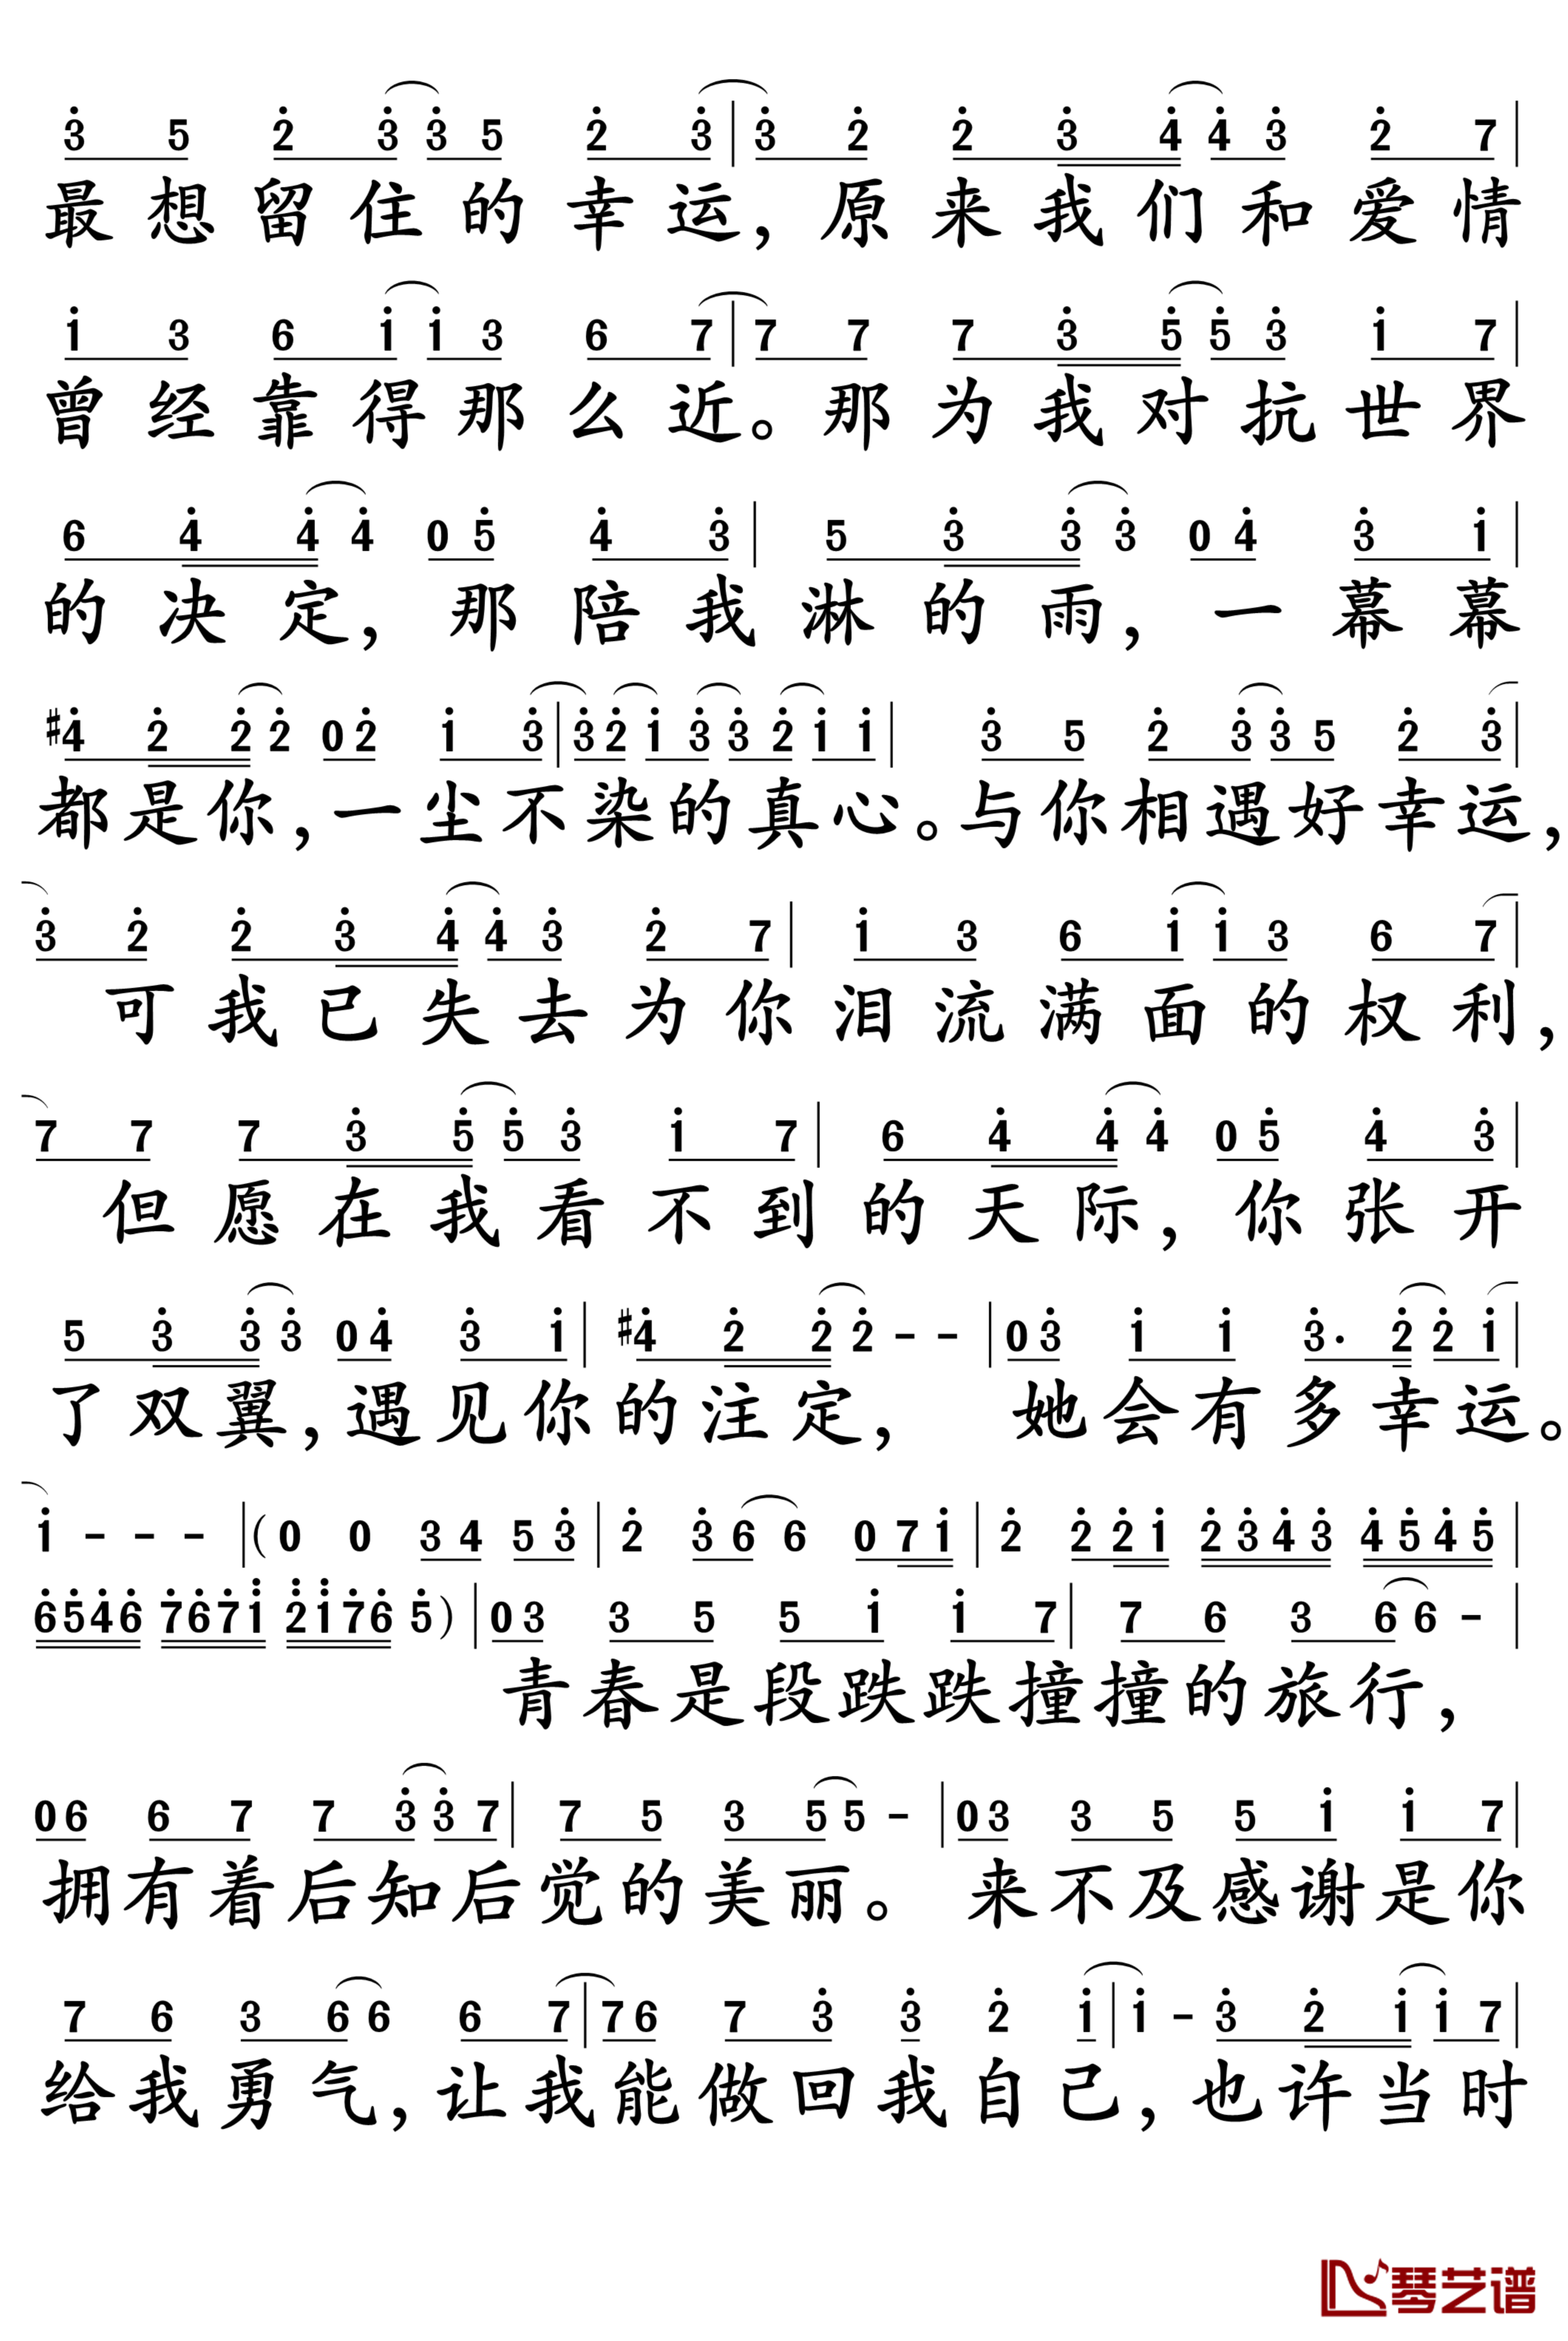 3̇ 5 2̇ 3̇ 3̇ 5 2̇ 3̇ | 3̇ 2̇ 2̇ 3̇ 4̇ 4̇ 3̇ 2̇ 7 |
最想留住的幸运，原来我们和爱情
1̇ 3 6 1̇ 1̇ 3 6 7 | 7 7 7 3̇ 5̇ 5̇ 3̇ 1̇ 7 |
曾经靠得那么近。那为我对抗世界
6 4̇ 4̇ 4̇ 0 5̇ 4̇ 3̇ | 5 3̇ 3̇ 3̇ 0 4̇ 3̇ 1̇ |
的决定，那陪我淋的雨，一幕幕
#4̇ 2̇ 2̇ 2̇ 0 2̇ 1̇ 3̇ | 3̇ 2̇ 1̇ 3̇ 3̇ 2̇ 1̇ 1̇ | 3̇ 5 2̇ 3̇ 3̇ 5 2̇ 3̇ |
都是你，一尘不染的真心。与你相遇好幸运，
3̇ 2̇ 2̇ 3̇ 4̇ 4̇ 3̇ 2̇ 7 | 1̇ 3 6 1̇ 1̇ 3 6 7 |
可我已失去为你泪流满面的权利，
7 7 7 3̇ 5̇ 5̇ 3̇ 1̇ 7 | 6 4̇ 4̇ 4̇ 0 5̇ 4̇ 3̇ |
但愿在我看不到的天际，你张开
5 3̇ 3̇ 3̇ 0 4̇ 3̇ 1̇ | #4̇ 2̇ 2̇ 2̇ - - | 0 3̇ 1̇ 1̇ 3. 2̇ 2̇ 1̇ |
了双翼，遇见你的注定，她会有多幸运。
1̇ - - - | ( 0 0 3 4 5 3̇ | 2̇ 3̇ 6 6 0 7 1̇ | 2̇ 2̇ 2̇ 1̇ 2̇ 3̇ 4̇ 3̇ 4̇ 5̇ 4̇ 5̇ |
6̇ 5̇ 4̇ 6̇ 7̇ 6̇ 7̇ 1̈ 2̈ 1̈ 7̇ 6̇ 5̇ ) | 0 3 3 5 5 1̇ 1̇ 7 | 7 6 3 6 6 - |
青春是段跌跌撞撞的旅行，
0 6 6 7 7 3̇ 3̇ 7 | 7 5 3 5 5 - | 0 3 3 5 5 1̇ 1̇ 7 |
拥有着后知后觉的美丽。来不及感谢是你
7 6 3 6 6 6 7 | 7 6 7 3̇ 3̇ 2̇ 1̇ | 1̇ - 3̇ 2̇ 1̇ 1̇ 7 |
给我勇气，让我能做回我自己，也许当时
琴艺谱